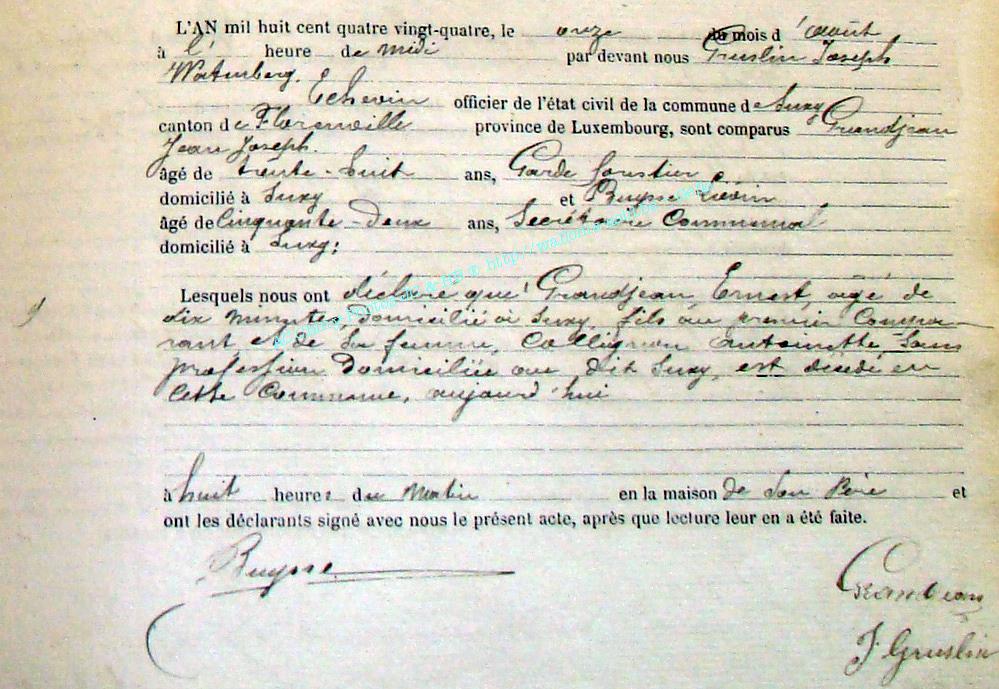 L'AN mil huit cent quatre vingt-quatre, le onze du mois d'août
à l' heure de midi par devant nous Gruslin Joseph
Watenberg.
Echevin officier de l'état civil de la commune de Suxy
canton de Florenville province de Luxembourg, sont comparus Grandjean
Jean Joseph.
âgé de trente-huit ans, Garde forestier
domicilié à Suxy et Buysse Liévin
âgé de Cinquante-Deux ans, Secrétaire Communal
domicilié à Suxy;
Lesquels nous ont déclaré que Grandjean, Ernest, âgé de
dix minutes, domicilié à Suxy, fils du premier Compa
rant et de Sa femme, Collignon Antoinette Sans
profession Domiciliée au dit Suxy, est décédé en
Cette Commune, aujourd'hui
à huit heures du Matin en la maison de Son Père et
ont les déclarants signé avec nous le présent acte, après que lecture leur en a été faite.
Buysse
Grandjean
J. Gruslin